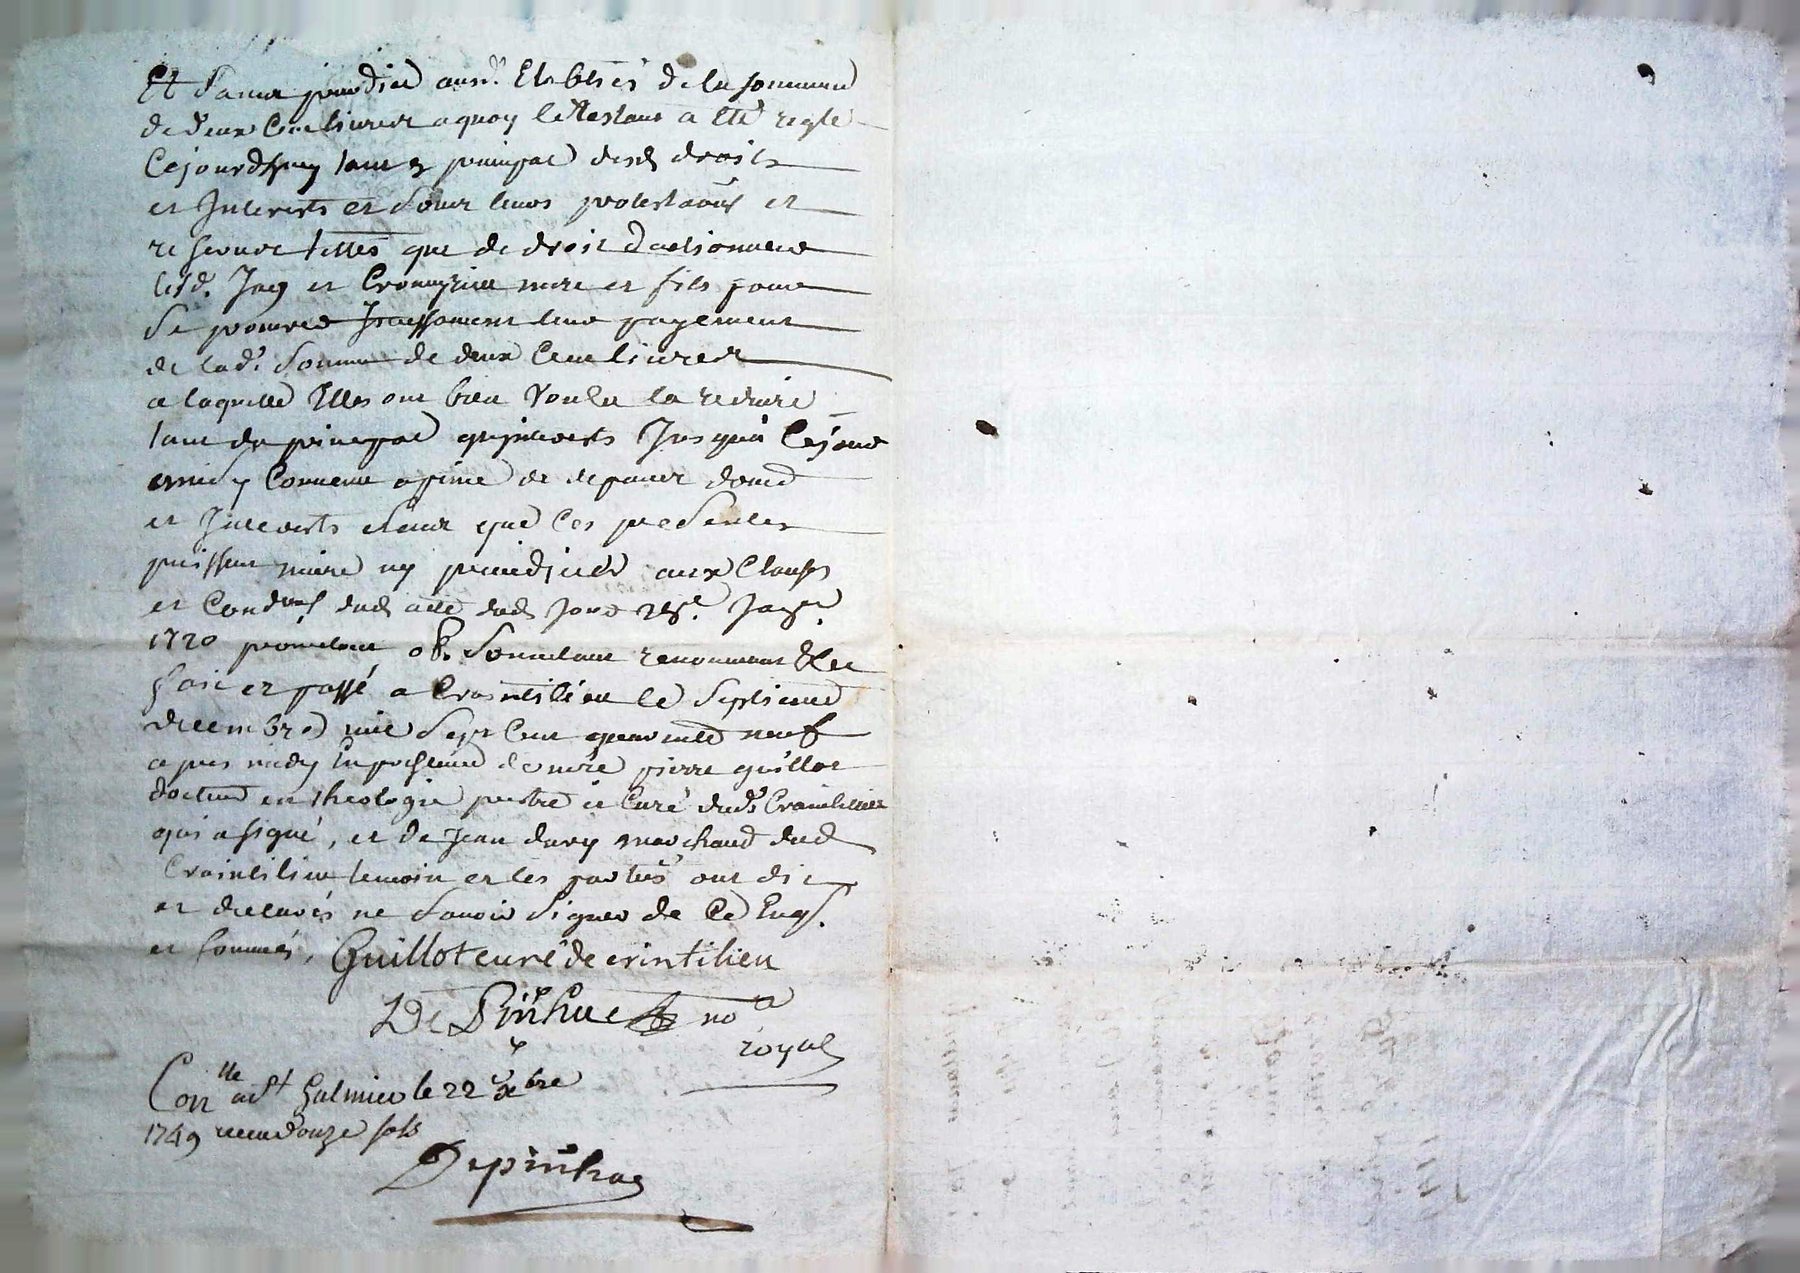 Et sans prejudice aux d. Establies de la somme
de deux cent livres a quoy le restant a eté reglé
Cejourdhuy tant en principal desd droits
et Interests et sous leurs protestaons et
reserve telles que de droit dactionner
lesd. et mere et fils pour
se pourvoir leur payement
de lad. somme de deux cent livres
a laquelle Illes ont bien Voulu la reduire
tant du principal qu'jnterests Jusqu'a Cejour
ainsy Convenu a peine de depens dom
et Interests sans que Ces presentes
puissent nuire ny prejudicier aux Clauses
et Condons dud acte dud Jour
1720 promettant ob. soumettant renonceant &c
fait et passé a Craintilieu le septieme
decembre mil sept cent quarante neuf
apres midy En presence de mre pierre guillot
docteur en theologie prestre et Curé dud Craintilieu
qui a signé, et de Jean davy marchand dud
Craintilieu temoin et les parties ont dit
et declarés ne savoir signer de Ce Enq.
et sommés, Guillot curé de crintilieu
De Pinhac nore
royal
Conlle a St Galmier le 22 Xbre
1749 receu douze sols
Depinhac